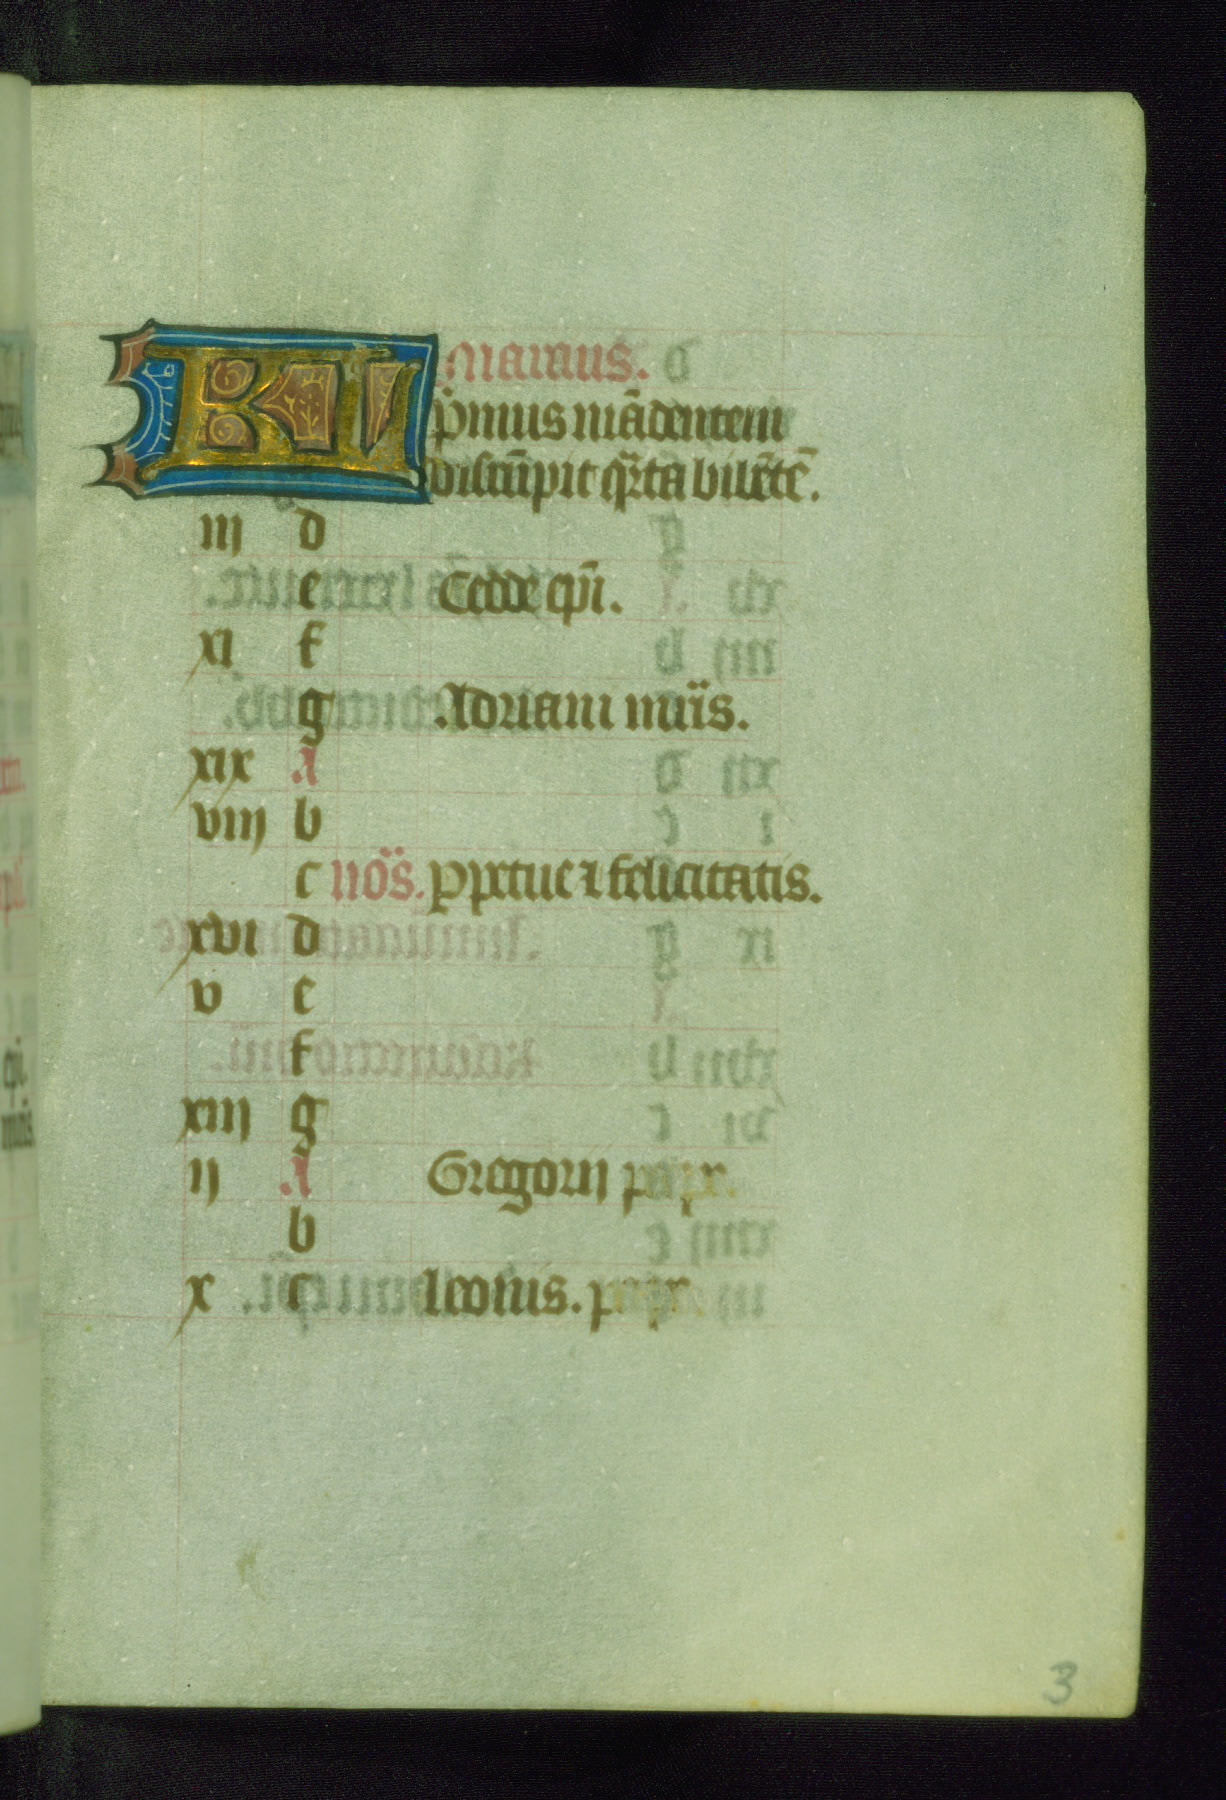 KL Marcius.
P̄mus mādentem
discūpit qͬrta bilētē.
iij d
e Cedde ep̄i.
xi f
g Adriani mr̄is.
xix A
viij b
c nōs. Ppetue ⁊ felicitatis.
xvi d
v e
f
xiij g
ij A Gregorij pape.
b
x c leonis. pape.
3